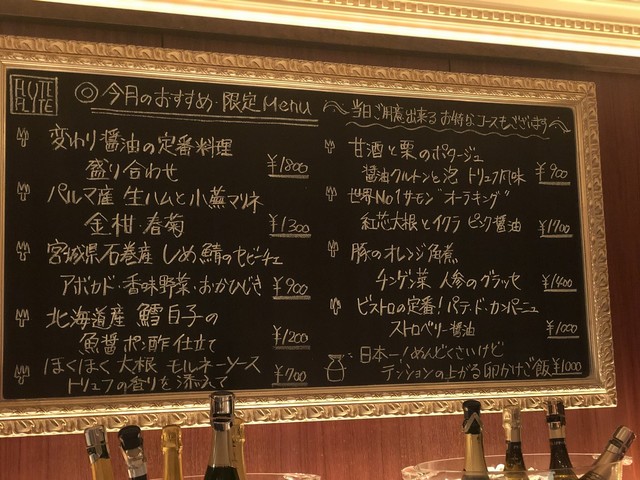 FLUTE FLUTE
◎今月のおすすめ・限定Menu
当日ご用意出来る お得なコースもございます
変わり醤油の定番料理
盛り合わせ ¥1800
パルマ産 生ハムと小蕪マリネ
金柑・春菊 ¥1300
宮城県石巻産 しめ鯖のセビーチェ
アボカド・香味野菜・おかひじき ¥900
北海道産 鱈白子の
魚醤ポン酢仕立て ¥1200
ほくほく大根 モルネーソース
トリュフの香りを添えて ¥700
甘酒と栗のポタージュ
醤油クルトンと泡 トリュフ風味 ¥900
世界No1サーモン"オーラキング"
紅芯大根とイクラ ピンク醤油 ¥1700
豚のオレンジ角煮
チンゲン菜 人参のグラッセ ¥1400
ビストロの定番!パテ・ド・カンパーニュ
ストロベリー醤油 ¥1000
日本一!めんどくさいけど
テンションの上がる卵かけご飯 ¥1000